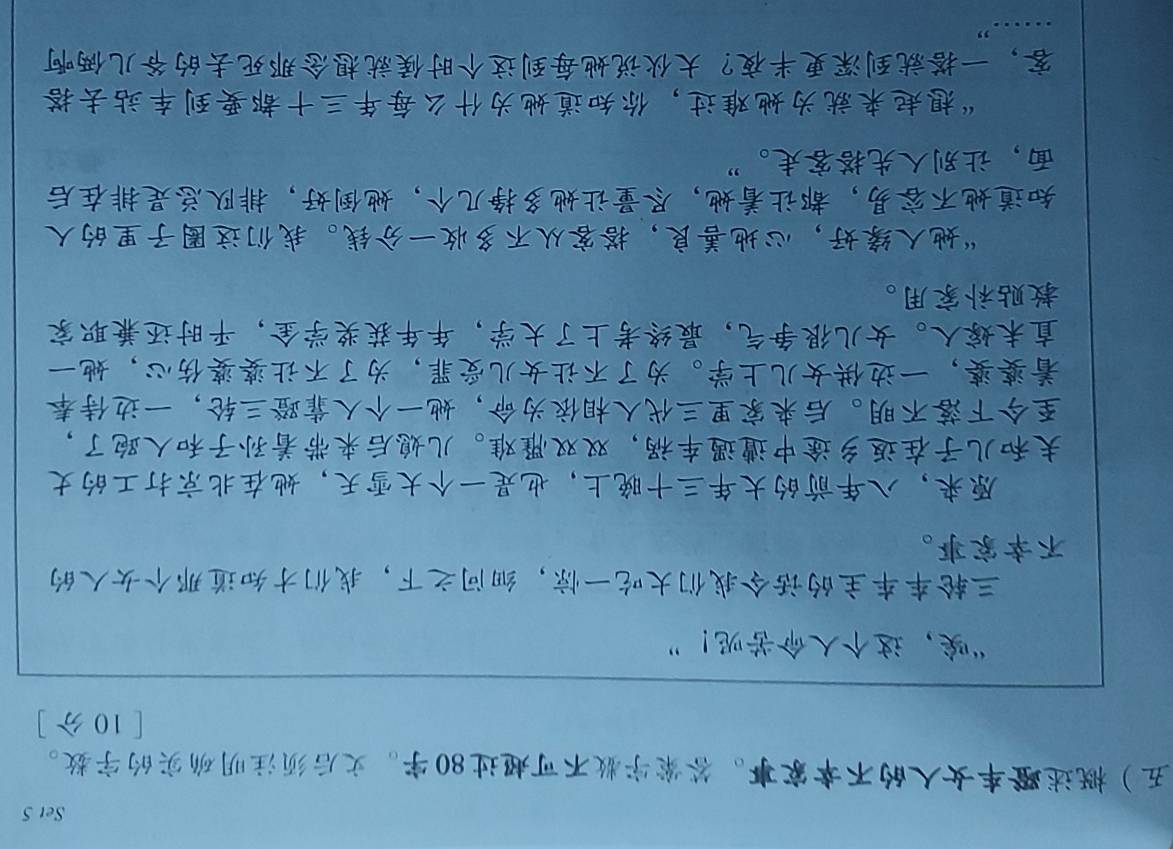 Set 5
五）概述蹬车女人的不幸家事。答案字数不可超过80字。文后须注明确实的字数。
[ 10 分 ]
“唉，这个人命苦呢！”
三轮车车主的话令我们大吃一惊，细问之下，我们才知道那个女人的
不幸家事。
原来，八年前的大年三十晚上，也是一个大雪天，她在北京打工的丈
夫和儿子在返乡途中遭遇车祸，双双罹难。儿媳后来带着孙子和人跑了，
至今下落不明。后来家里三代人相依为命，她一个人靠蹬三轮，一边侍奉
着婆婆，一边供女儿上学。为了不让女儿受罪，为了不让婆婆伤心，她一
直未嫁人。女儿很争气，最终考上了大学，年年获奖学金，平时还兼职家
教贴补家用。
“她人缘好，心地善良，搭客从不多收一分钱。我们这圈子里的人
知道她不容易，都让着她，尽量让她多挣几个，她倒好，排队总是排在后
面，让别人先搭客走。”
“想起来就为她难过，你知道她为什么每年三十都要到车站去搭
客，一搭就到深更半夜？大伙说她每到这个时候就想念那死去的爷儿俩啊
……”